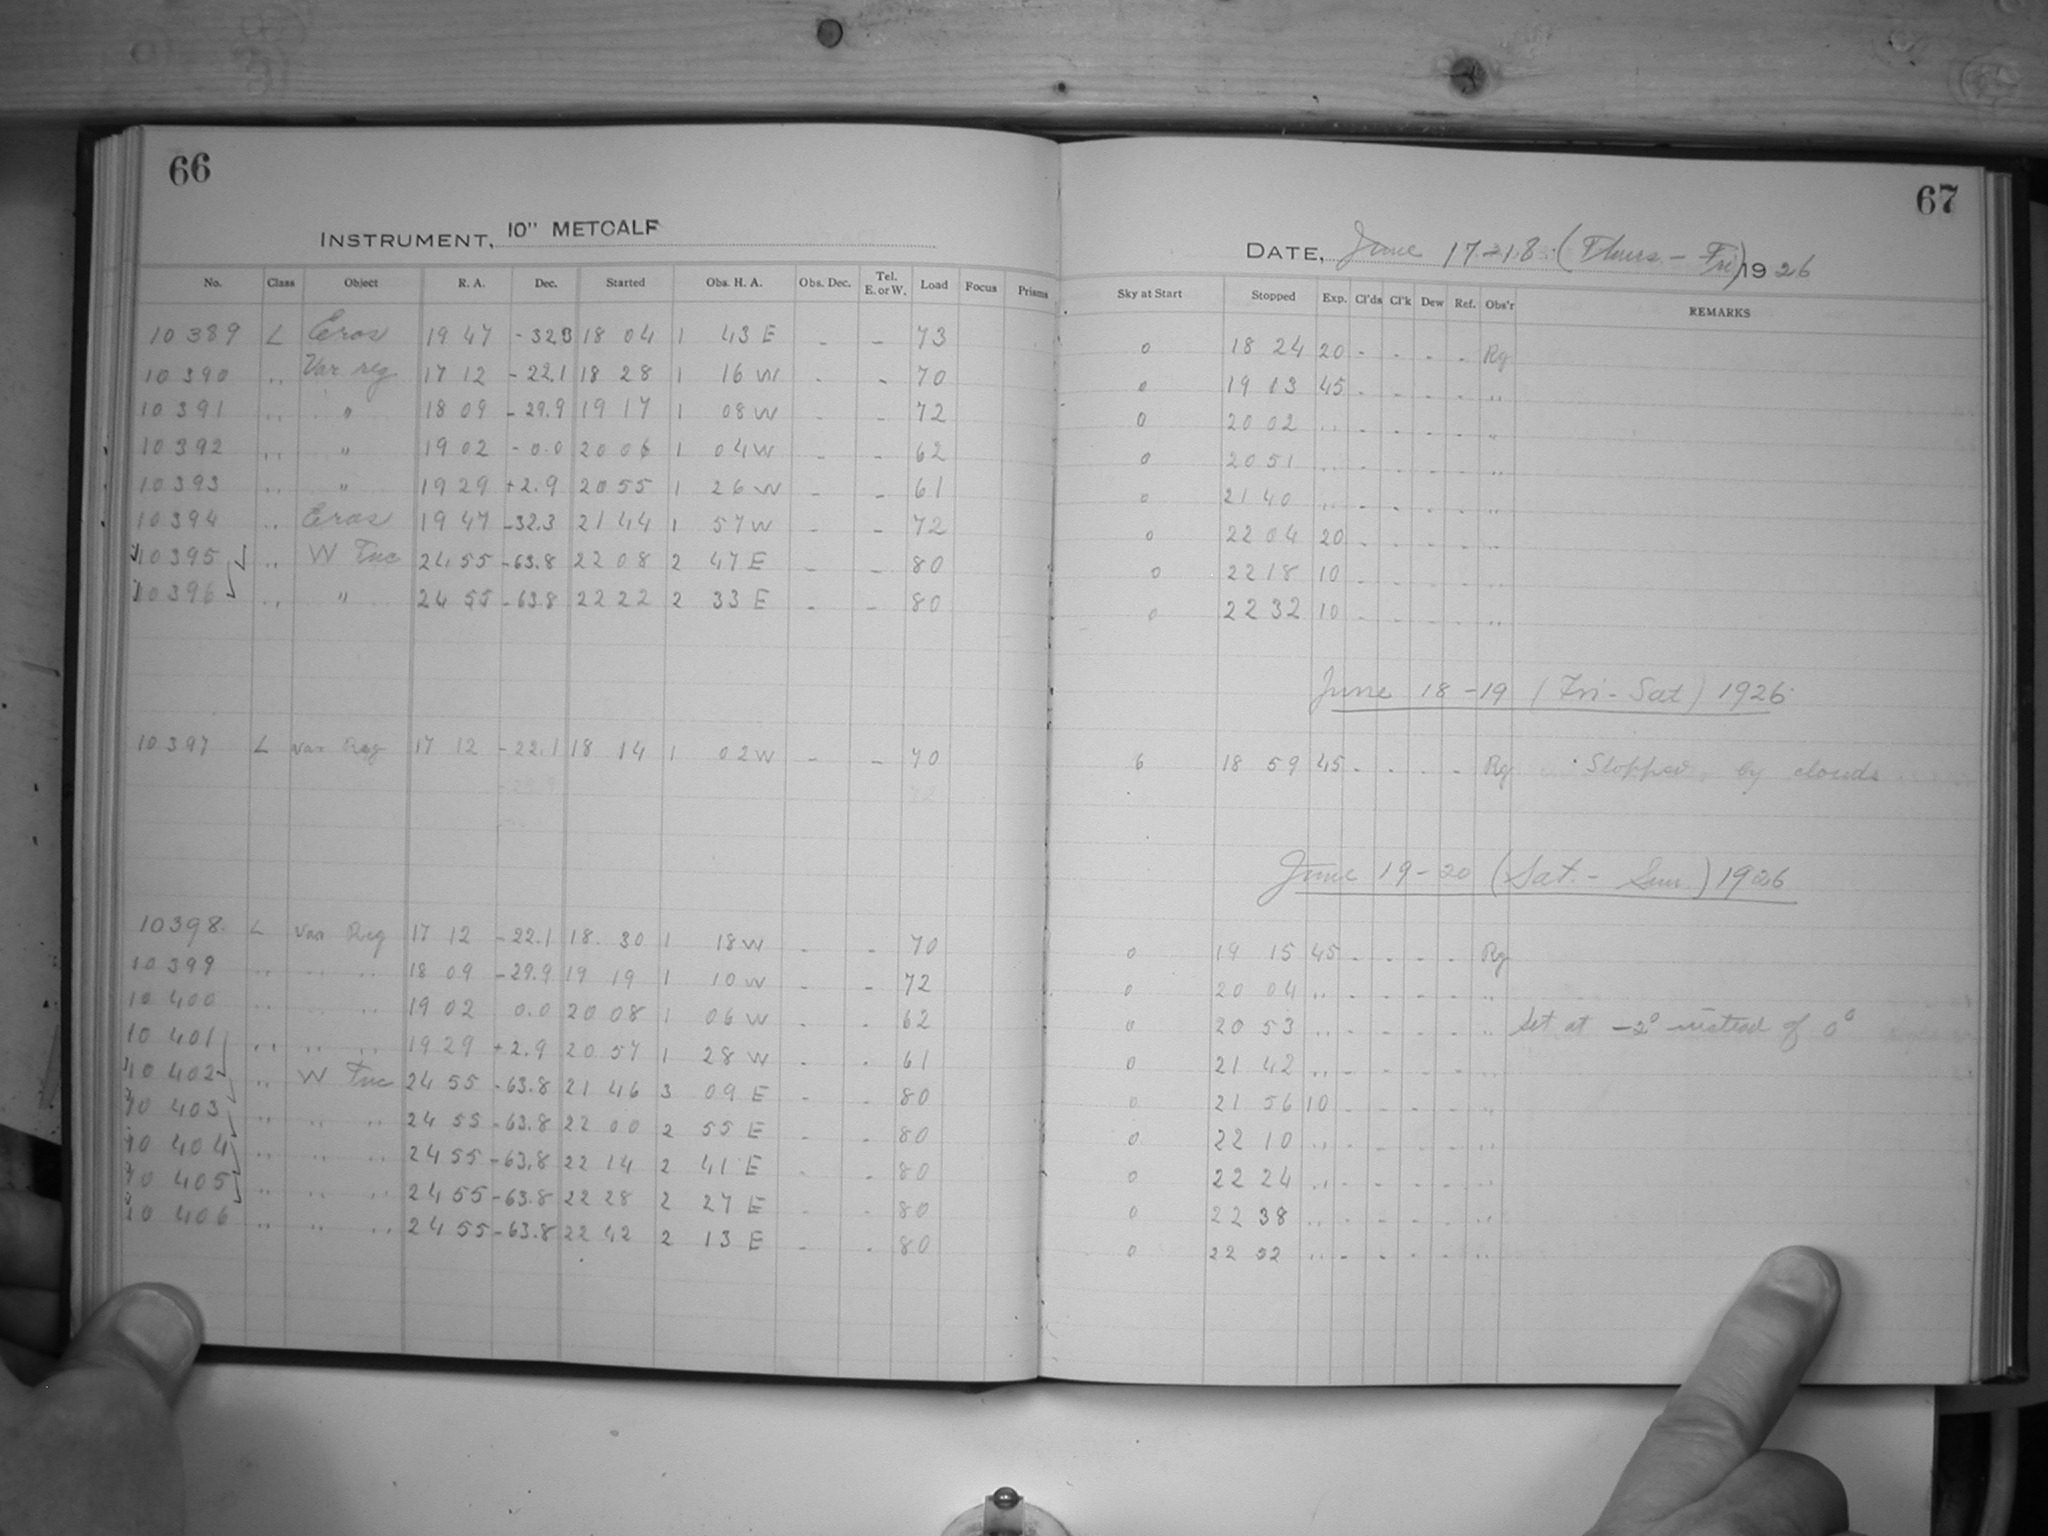 66
INSTRUMENT, 10" METCALF
No. Class Object R. A. Dec. Started Obs. H. A. Obs. Dec. Tel. E. or W. Load Focus Prisms
10389 L Eros 19 47 - 32.3 18 04 1 43 E - - 73
10390 " Var reg 17 12 - 22.1 18 28 1 16 W - - 70
10391 " " 18 09 - 29.9 19 17 1 08 W - - 72
10392 " " 19 02 - 0.0 20 06 1 04 W - - 62
10393 " " 19 29 + 2.9 20 55 1 26 W - - 61
10394 " Eros 19 47 - 32.3 21 44 1 57 W - - 72
10395 " W Tuc 24 55 - 63.8 22 08 2 47 E - - 80
10396 " " 24 55 - 63.8 22 22 2 33 E - - 80
10397 L Var Reg 17 12 - 22.1 18 14 1 02 W - - 70
10398 L Var Reg 17 12 - 22.1 18 30 1 18 W - - 70
10399 " " " 18 09 - 29.9 19 19 1 10 W - - 72
10400 " " " 19 02 0.0 20 08 1 06 W - - 62
10401 " " " 19 29 + 2.9 20 57 1 28 W - - 61
10402 " W Tuc 24 55 - 63.8 21 46 3 09 E - - 80
10403 " " " 24 55 - 63.8 22 00 2 55 E - - 80
10404 " " " 24 55 - 63.8 22 14 2 41 E - - 80
10405 " " " 24 55 - 63.8 22 28 2 27 E - - 80
10406 " " " 24 55 - 63.8 22 42 2 13 E - - 80
67
DATE, June 17-18 (Thurs - Fri) 1926
Sky at Start Stopped Exp. Cl'ds Cl'k Dew Ref. Obs'r REMARKS
0 18 24 20 - - - - Rg
0 19 13 45 - - - - "
0 20 02 " - - - - "
0 20 51 " - - - - "
0 21 40 " - - - - "
0 22 04 20 - - - - "
0 22 18 10 - - - - "
0 22 32 10 - - - - "
June 18-19 (Fri-Sat) 1926
6 18 59 45 - - - - Rg Stopped by clouds
June 19-20 (Sat. - Sun.) 1926
0 19 15 45 - - - - Rg
0 20 04 " - - - - "
0 20 53 " - - - - " Set at -2° instead of 0°
0 21 42 " - - - - "
0 21 56 10 - - - - "
0 22 10 " - - - - "
0 22 24 " - - - - "
0 22 38 " - - - - "
0 22 52 " - - - - "